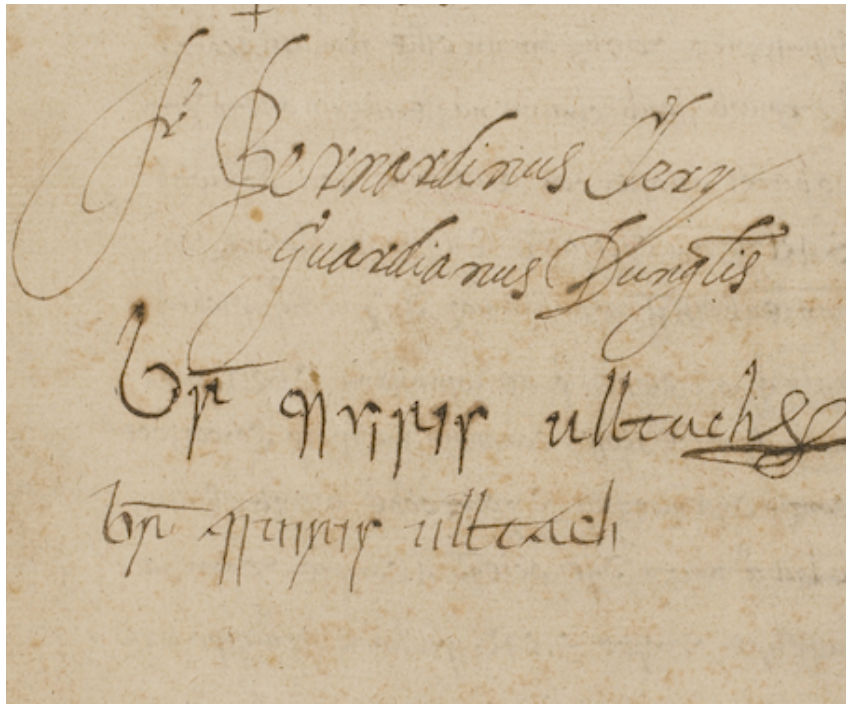 Fr Bernardinus Clery
Guardianus Dunglis
br̄ muiris ulltach
br̄ muiris ulltach